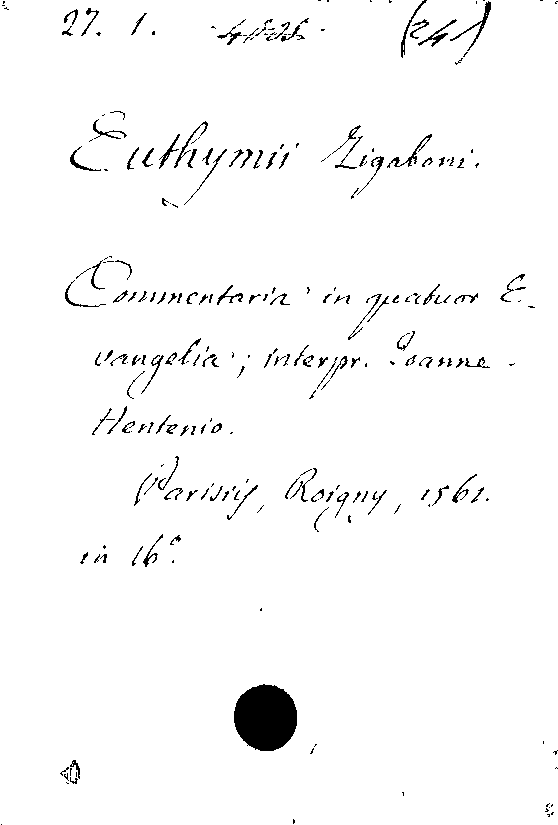 27. 1. (24)
Euthymii Zigaboni.
Commentaria in quatuor E-
vangelia ; interpr. Joanne
Hentenio.
Parisiis, Roigny, 1561.
in 16º.